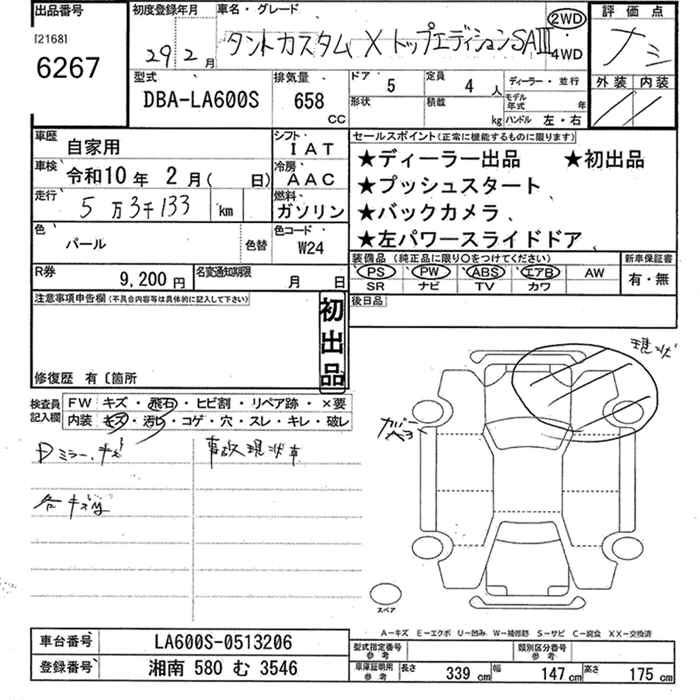 出品番号
[2168]
6267
初度登録年月
29年2月
車名・グレード
タントカスタム X トップエディションSAⅢ
2WD
4WD
評価点
ナシ
外装 内装
型式
DBA-LA600S
排気量
658
CC
ドア
5
定員
4人
形状
積載
kg
ディーラー・並行
モデル年式 年
ハンドル 左・右
車歴
自家用
車検
令和10年 2月( 日)
走行
5万3千133 km
色
パール
色替
シフト
IAT
冷房
AAC
燃料
ガソリン
色コード
W24
セールスポイント(正常に機能するものに限ります)
★ディーラー出品 ★初出品
★プッシュスタート
★バックカメラ
★左パワースライドドア
R券
9,200円
名変通知期限
月 日
装備品(純正品に限り○をつけてください)
PS PW ABS エアB AW
SR ナビ TV カワ
新車保証書
有・無
注意事項申告欄(不具合内容等は具体的に記入して下さい)
初出品
後日品
修復歴 有〔箇所
検査員記入欄
FW キズ・飛石・ヒビ割・リペア跡・×要
内装 キズ・汚れ・コゲ・穴・スレ・キレ・破レ
Dミラーキズ
事故現状車
各キズ
現状
カバー
スペア
A-キズ E-エクボ U-凹み W-補修跡 S-サビ C-腐食 XX-交換済
車台番号
LA600S-0513206
登録番号
湘南 580 む 3546
型式指定番号
参考
類別区分番号
参考
車庫証明用
参考
長さ 339 cm 幅 147 cm 高さ 175 cm